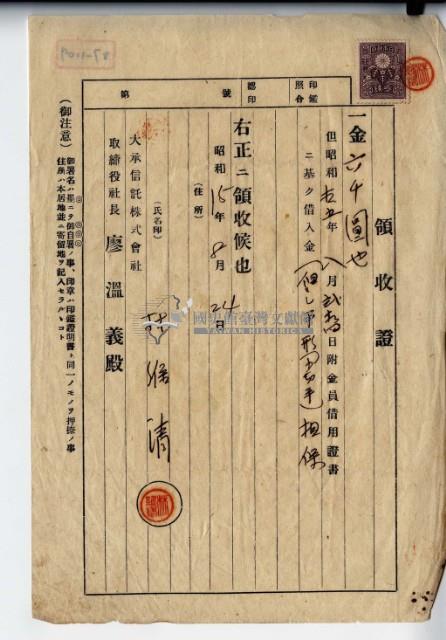 領收證
一金六千圓也
但昭和拾五年八月貳拾四日附金員借用證書
ニ基ク借入金
擔保
右正ニ領收候也
昭和15年8月24日
(住所)
(氏名印)
大承信託株式會社
取締役社長 廖溫義殿
(御注意)
御署名ハ楷ニテ御自署ノ事、印章ハ印鑑證明書ト同一ノモノヲ押捺ノ事
住所ハ本居地並ニ寄留地ヲ記入セラルコト
印鑑照合
認印
第 號
國史館臺灣文獻館
TAIWAN HISTORICA